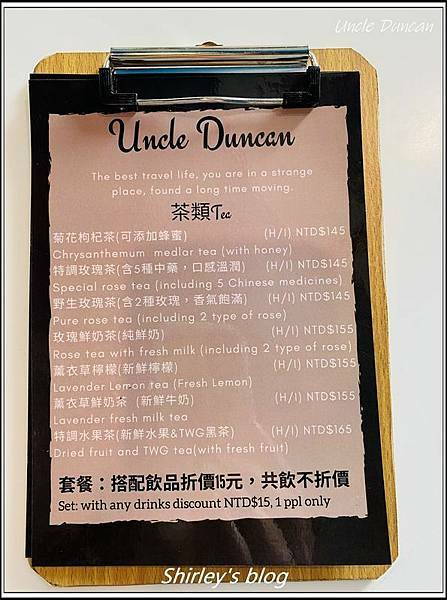 Uncle Duncan
Uncle Duncan
The best travel life, you are in a strange
place, found a long time moving.
茶類Tea
菊花枸杞茶(可添加蜂蜜) (H/I) NTD$145
Chrysanthemum medlar tea (with honey)
特調玫瑰茶(含5種中藥，口感溫潤) (H/I) NTD$145
Special rose tea (including 5 Chinese medicines)
野生玫瑰茶(含2種玫瑰，香氣飽滿) (H/I) NTD$145
Pure rose tea (including 2 type of rose)
玫瑰鮮奶茶(純鮮奶) (H/I) NTD$155
Rose tea with fresh milk (including 2 type of rose)
薰衣草檸檬(新鮮檸檬) (H/I) NTD$155
Lavender Lemon tea (Fresh Lemon)
薰衣草鮮奶茶 (新鮮牛奶) (H/I) NTD$155
Lavender fresh milk tea
特調水果茶(新鮮水果&TWG黑茶) (H/I) NTD$165
Dried fruit and TWG tea(with fresh fruit)
套餐：搭配飲品折價15元，共飲不折價
Set: with any drinks discount NTD$15, 1 ppl only
Shirley's blog